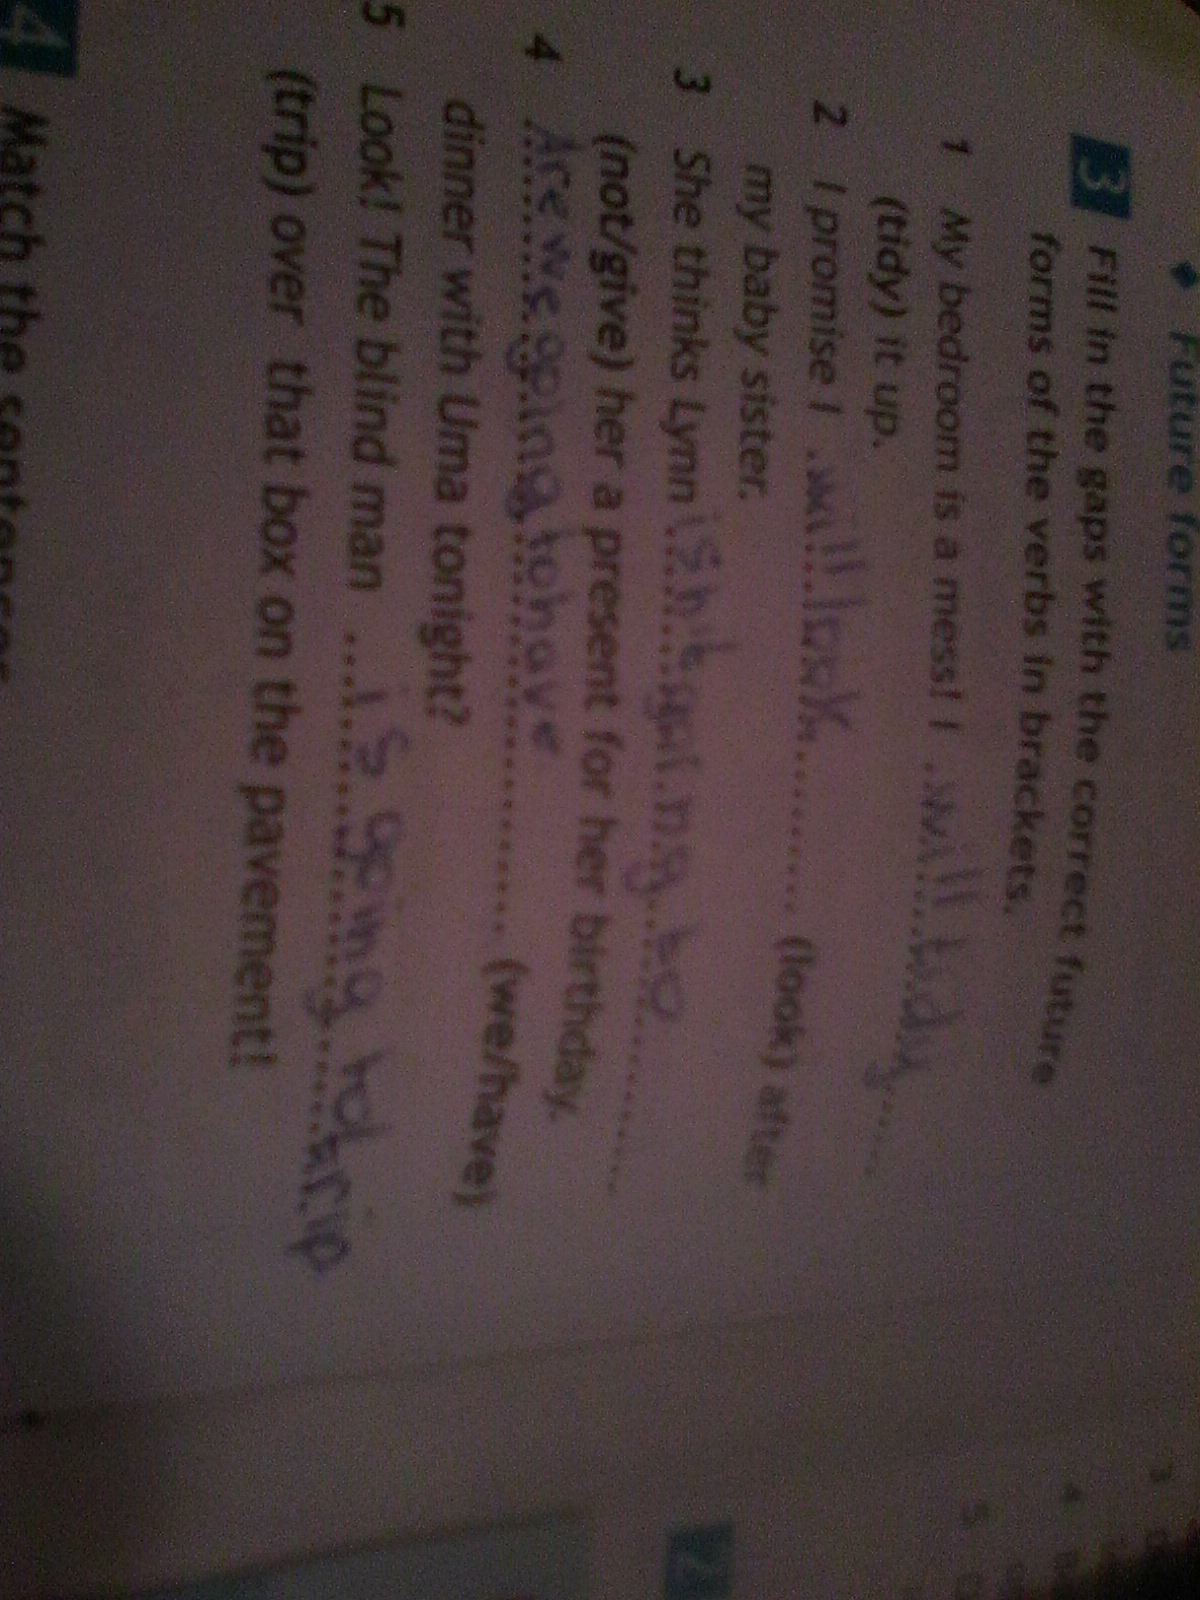 ◆ Future forms
3 Fill in the gaps with the correct future
forms of the verbs in brackets.
1 My bedroom is a mess! I will tidy
(tidy) it up.
2 I promise I will look (look) after
my baby sister.
3 She thinks Lynn isn't going to
(not/give) her a present for her birthday.
4 Are we going to have (we/have)
dinner with Uma tonight?
5 Look! The blind man is going to trip
(trip) over that box on the pavement!
4 Match the sentences
3
4
5
2